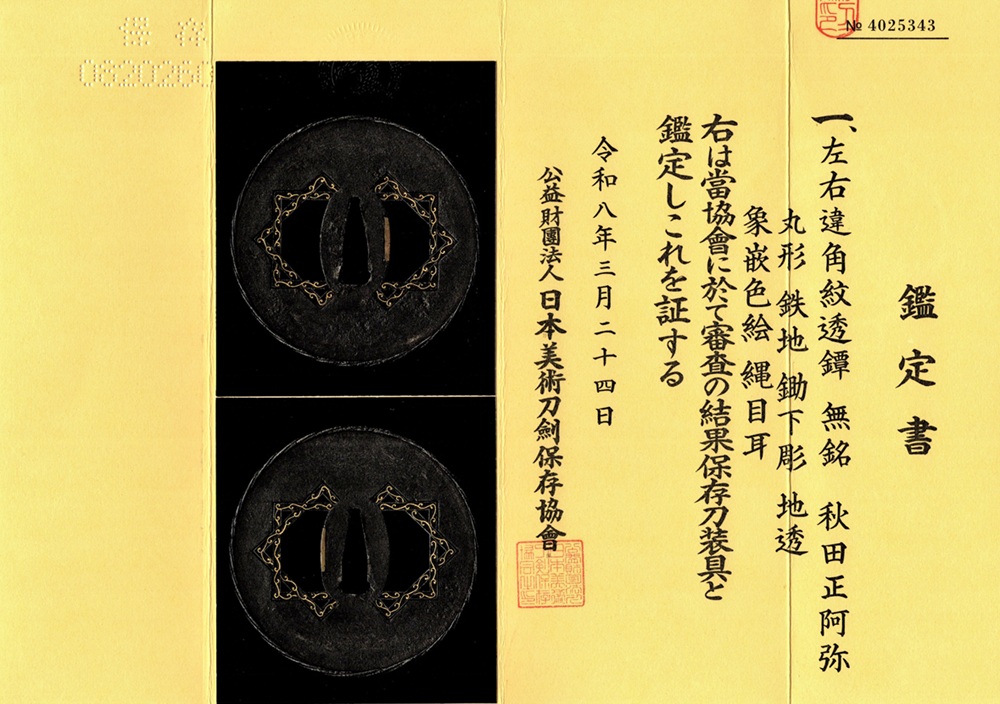 № 4025343
鑑定書
一、左右違角紋透鐔 無銘 秋田正阿弥
丸形 鉄地 鋤下彫 地透
象嵌色絵 縄目耳
右は當協會に於て審査の結果保存刀装具と
鑑定しこれを証する
令和八年三月二十四日
公益財團法人 日本美術刀劍保存協會
保存
0820260